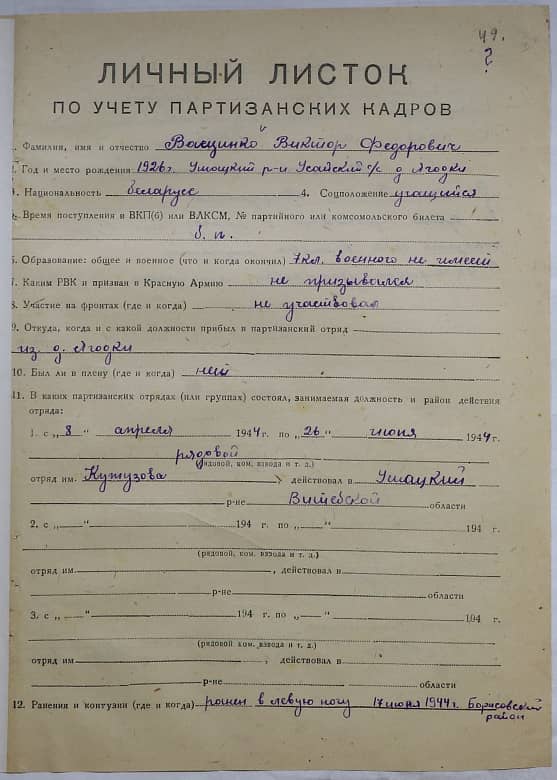 49.
?
ЛИЧНЫЙ ЛИСТОК
ПО УЧЕТУ ПАРТИЗАНСКИХ КАДРОВ
1. Фамилия, имя и отчество Васцинко Виктор Федорович
2. Год и место рождения 1926 г. Ушацкий р-н Усайский с/с д Ягодки
3. Национальность беларусс 4. Соцположение учащийся
5. Время поступления в ВКП(б) или ВЛКСМ, № партийного или комсомольского билета
б. п.
6. Образование: общее и военное (что и когда окончил) 7 кл. военного не имеет
7. Каким РВК и призван в Красную Армию не призывался
8. Участие на фронтах (где и когда) не участвовал
9. Откуда, когда и с какой должности прибыл в партизанский отряд
из д. Ягодки
10. Был ли в плену (где и когда) нет
11. В каких партизанских отрядах (или группах) состоял, занимаемая должность и район действия
отряда:
1. с „8“ апреля 1944 г. по „26“ июня 1944 г.
рядовой
(рядовой, ком. взвода и т. д.)
отряд им. Кутузова, действовал в Ушацкий
р-не Витебской области
2. с „ “ 194 г. по „ “ 194 г.
(рядовой, ком. взвода и т. д.)
отряд им. , действовал в
р-не области
3. с „ “ 194 г. по „ “ 194 г.
(рядовой, ком. взвода и т. д.)
отряд им , действовал в
р-не области
12. Ранения и контузии (где и когда) ранен в левую ногу 17 июня 1944 г. Борисовский
район